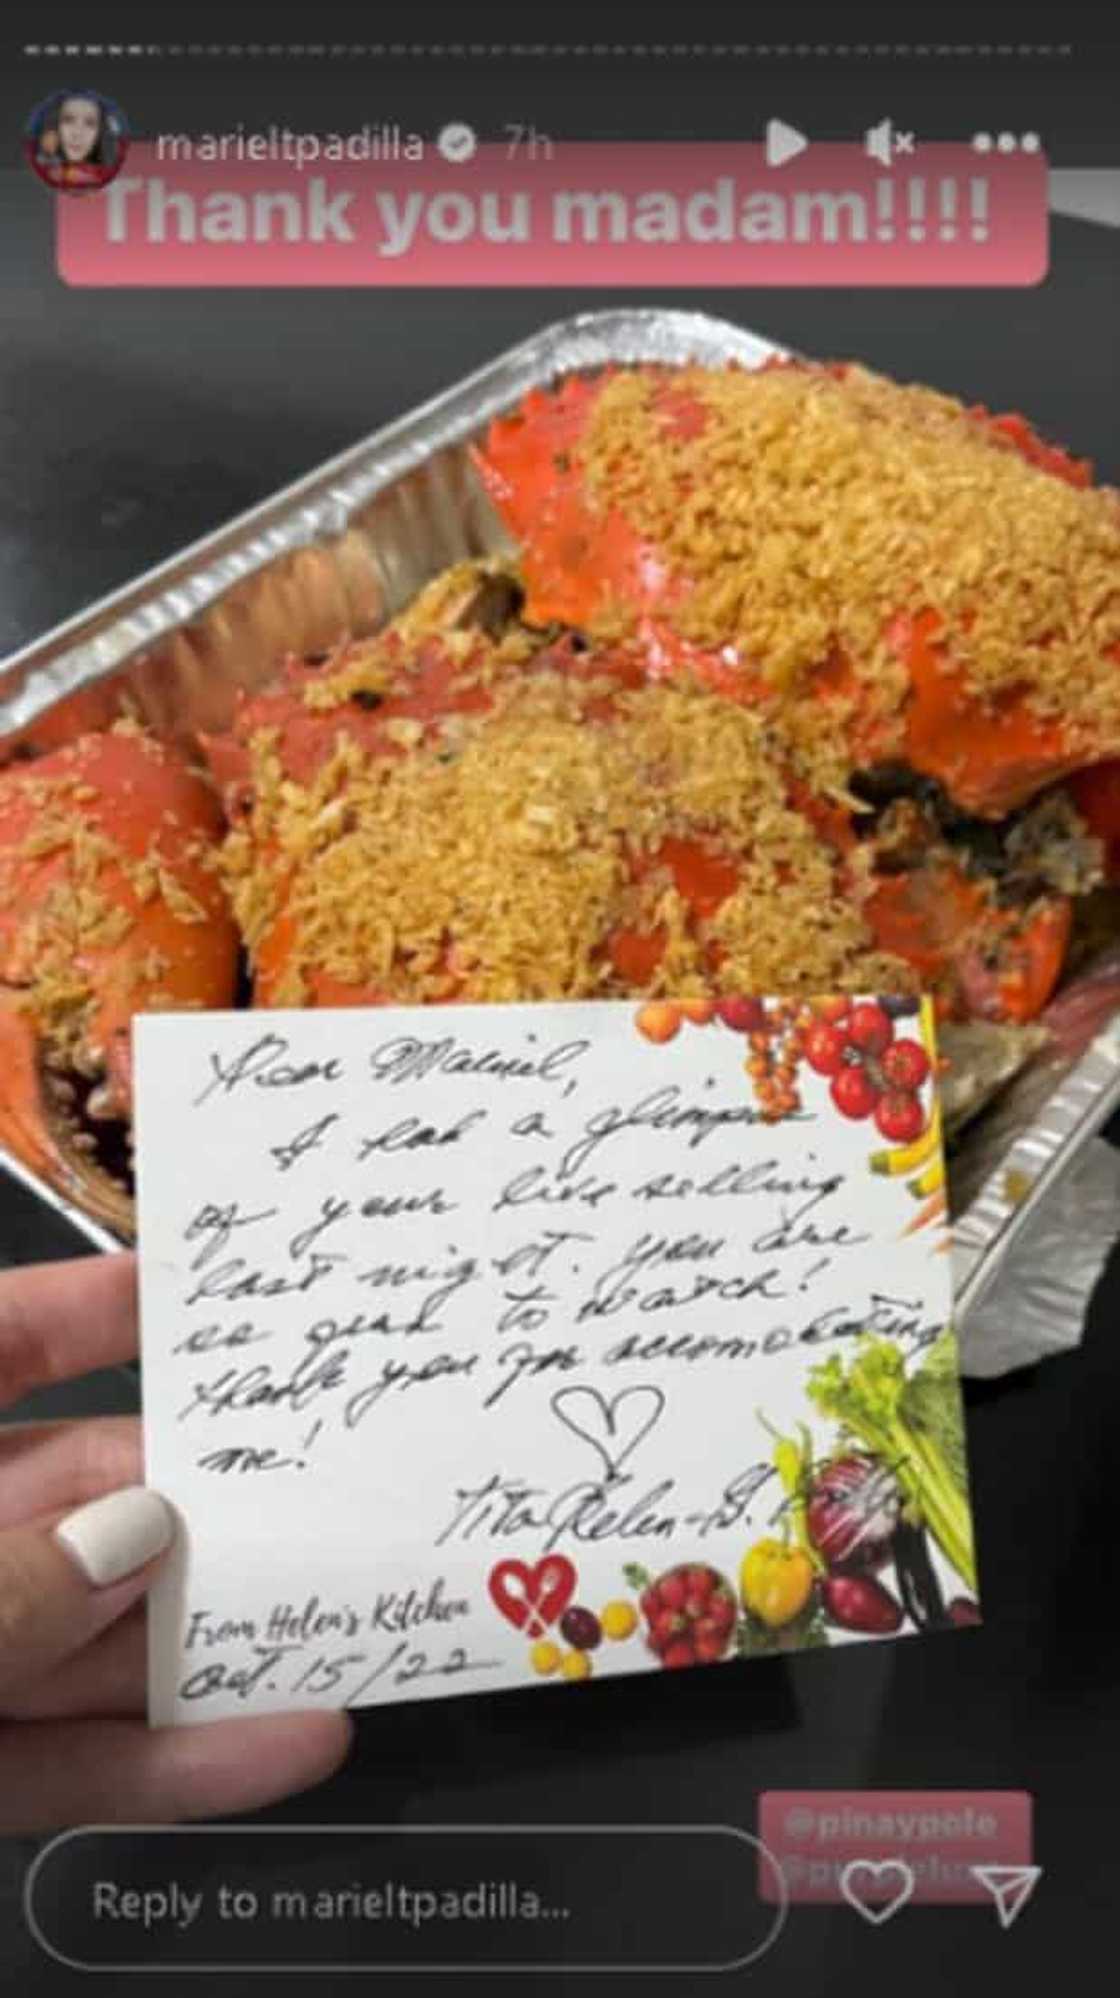 marieltpadilla 7h
Thank you madam!!!!
Dear Mariel,
I had a glimpse
of your live selling
last night. you are
so great to watch!
thank you for accomodating
me!
Tita Helen-G.
From Helen's Kitchen
Oct. 15/22
@pinaypole
Reply to marieltpadilla...